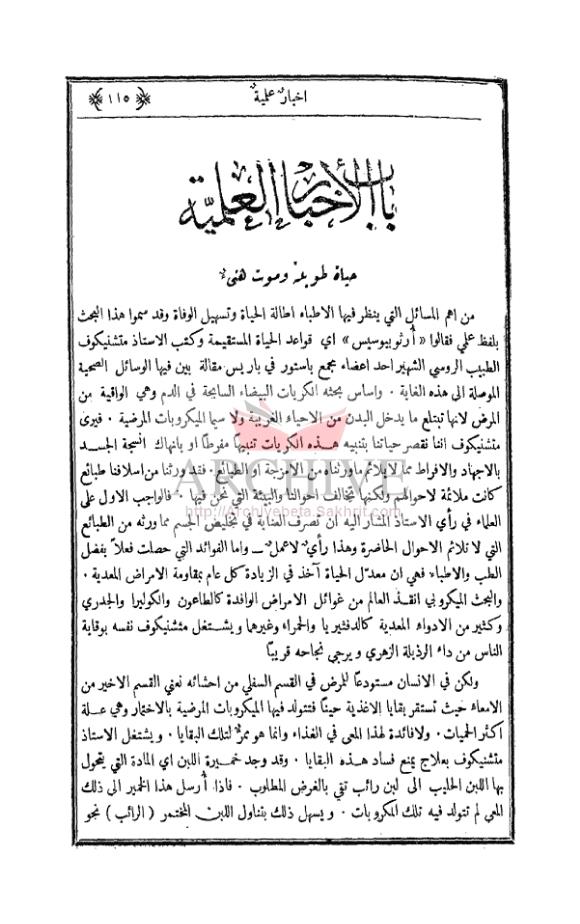 اخبار علمية
﴿ ١١٥ ﴾
باب الأخبار العلميّة
حياة طويلة وموت هنيء
من اهم المسائل التي ينظر فيها الاطباء اطالة الحياة وتسهيل الوفاة وقد سموا هذا البحث
بلفظ علمي فقالوا « أرثوبيوسيس » اي قواعد الحياة المستقيمة وكتب الاستاذ متشنيكوف
الطبيب الروسي الشهير احد اعضاء مجمع باستور في باريس مقالة بين فيها الوسائل الصحية
الموصلة الى هذه الغاية . واساس بحثه الكريات البيضاء السابحة في الدم وهي الواقية من
المرض لانها تبتلع ما يدخل البدن من الاحياء الغريبة ولا سيما الميكروبات المرضية . فيرى
متشنيكوف اننا نقصر حياتنا بتنبيه هذه الكريات تنبيهاً مفرطاً او بانهاك انسجة الجسد
بالاجهاد والافراط مما لا يلائم ما ورثناه من الامزجة او الطبائع . فقد ورثنا من اسلافنا طبائع
كانت ملائمة لاحوالهم ولكنها تخالف احوالنا والبيئة التي نحن فيها . فالواجب الاول على
العلماء في رأي الاستاذ المشار اليه ان تصرف العناية في تخليص الجسم مما ورثه من الطبائع
التي لا تلائم الاحوال الحاضرة وهذا رأي لا عمل ــ واما الفوائد التي حصلت فعلاً بفضل
الطب والاطباء فهي ان معدّل الحياة آخذ في الزيادة كل عام بمقاومة الامراض المعدية .
والبحث الميكروبي انقذ العالم من غوائل الامراض الوافدة كالطاعون والكوليرا والجدري
وكثير من الادواء المعدية كالدفثيريا والحمراء وغيرهما ويشتغل متشنيكوف نفسه بوقاية
الناس من داء الرذيلة الزهري ويرجى نجاحه قريباً
ولكن في الانسان مستودعاً للمرض في القسم السفلي من احشائه نعني القسم الاخير من
الامعاء حيث تستقر بقايا الاغذية حيناً فتتولد فيها الميكروبات المرضية بالاختمار وهي علة
اكثر الحميات . ولا فائدة لهذا المعى في الغذاء وانما هو ممرّ لتلك البقايا . ويشتغل الاستاذ
متشنيكوف بعلاج يمنع فساد هذه البقايا . وقد وجد خميرة اللبن اي المادة التي يتحول
بها اللبن الحليب الى لبن رائب تفي بالغرض المطلوب . فاذا أرسل هذا الخمير الى ذلك
المعى لم تتولد فيه تلك المكروبات . ويسهل ذلك بتناول اللبن المختمر ( الرائب ) نحو
ARCHIVE
http://Archivebeta.Sakhrit.com